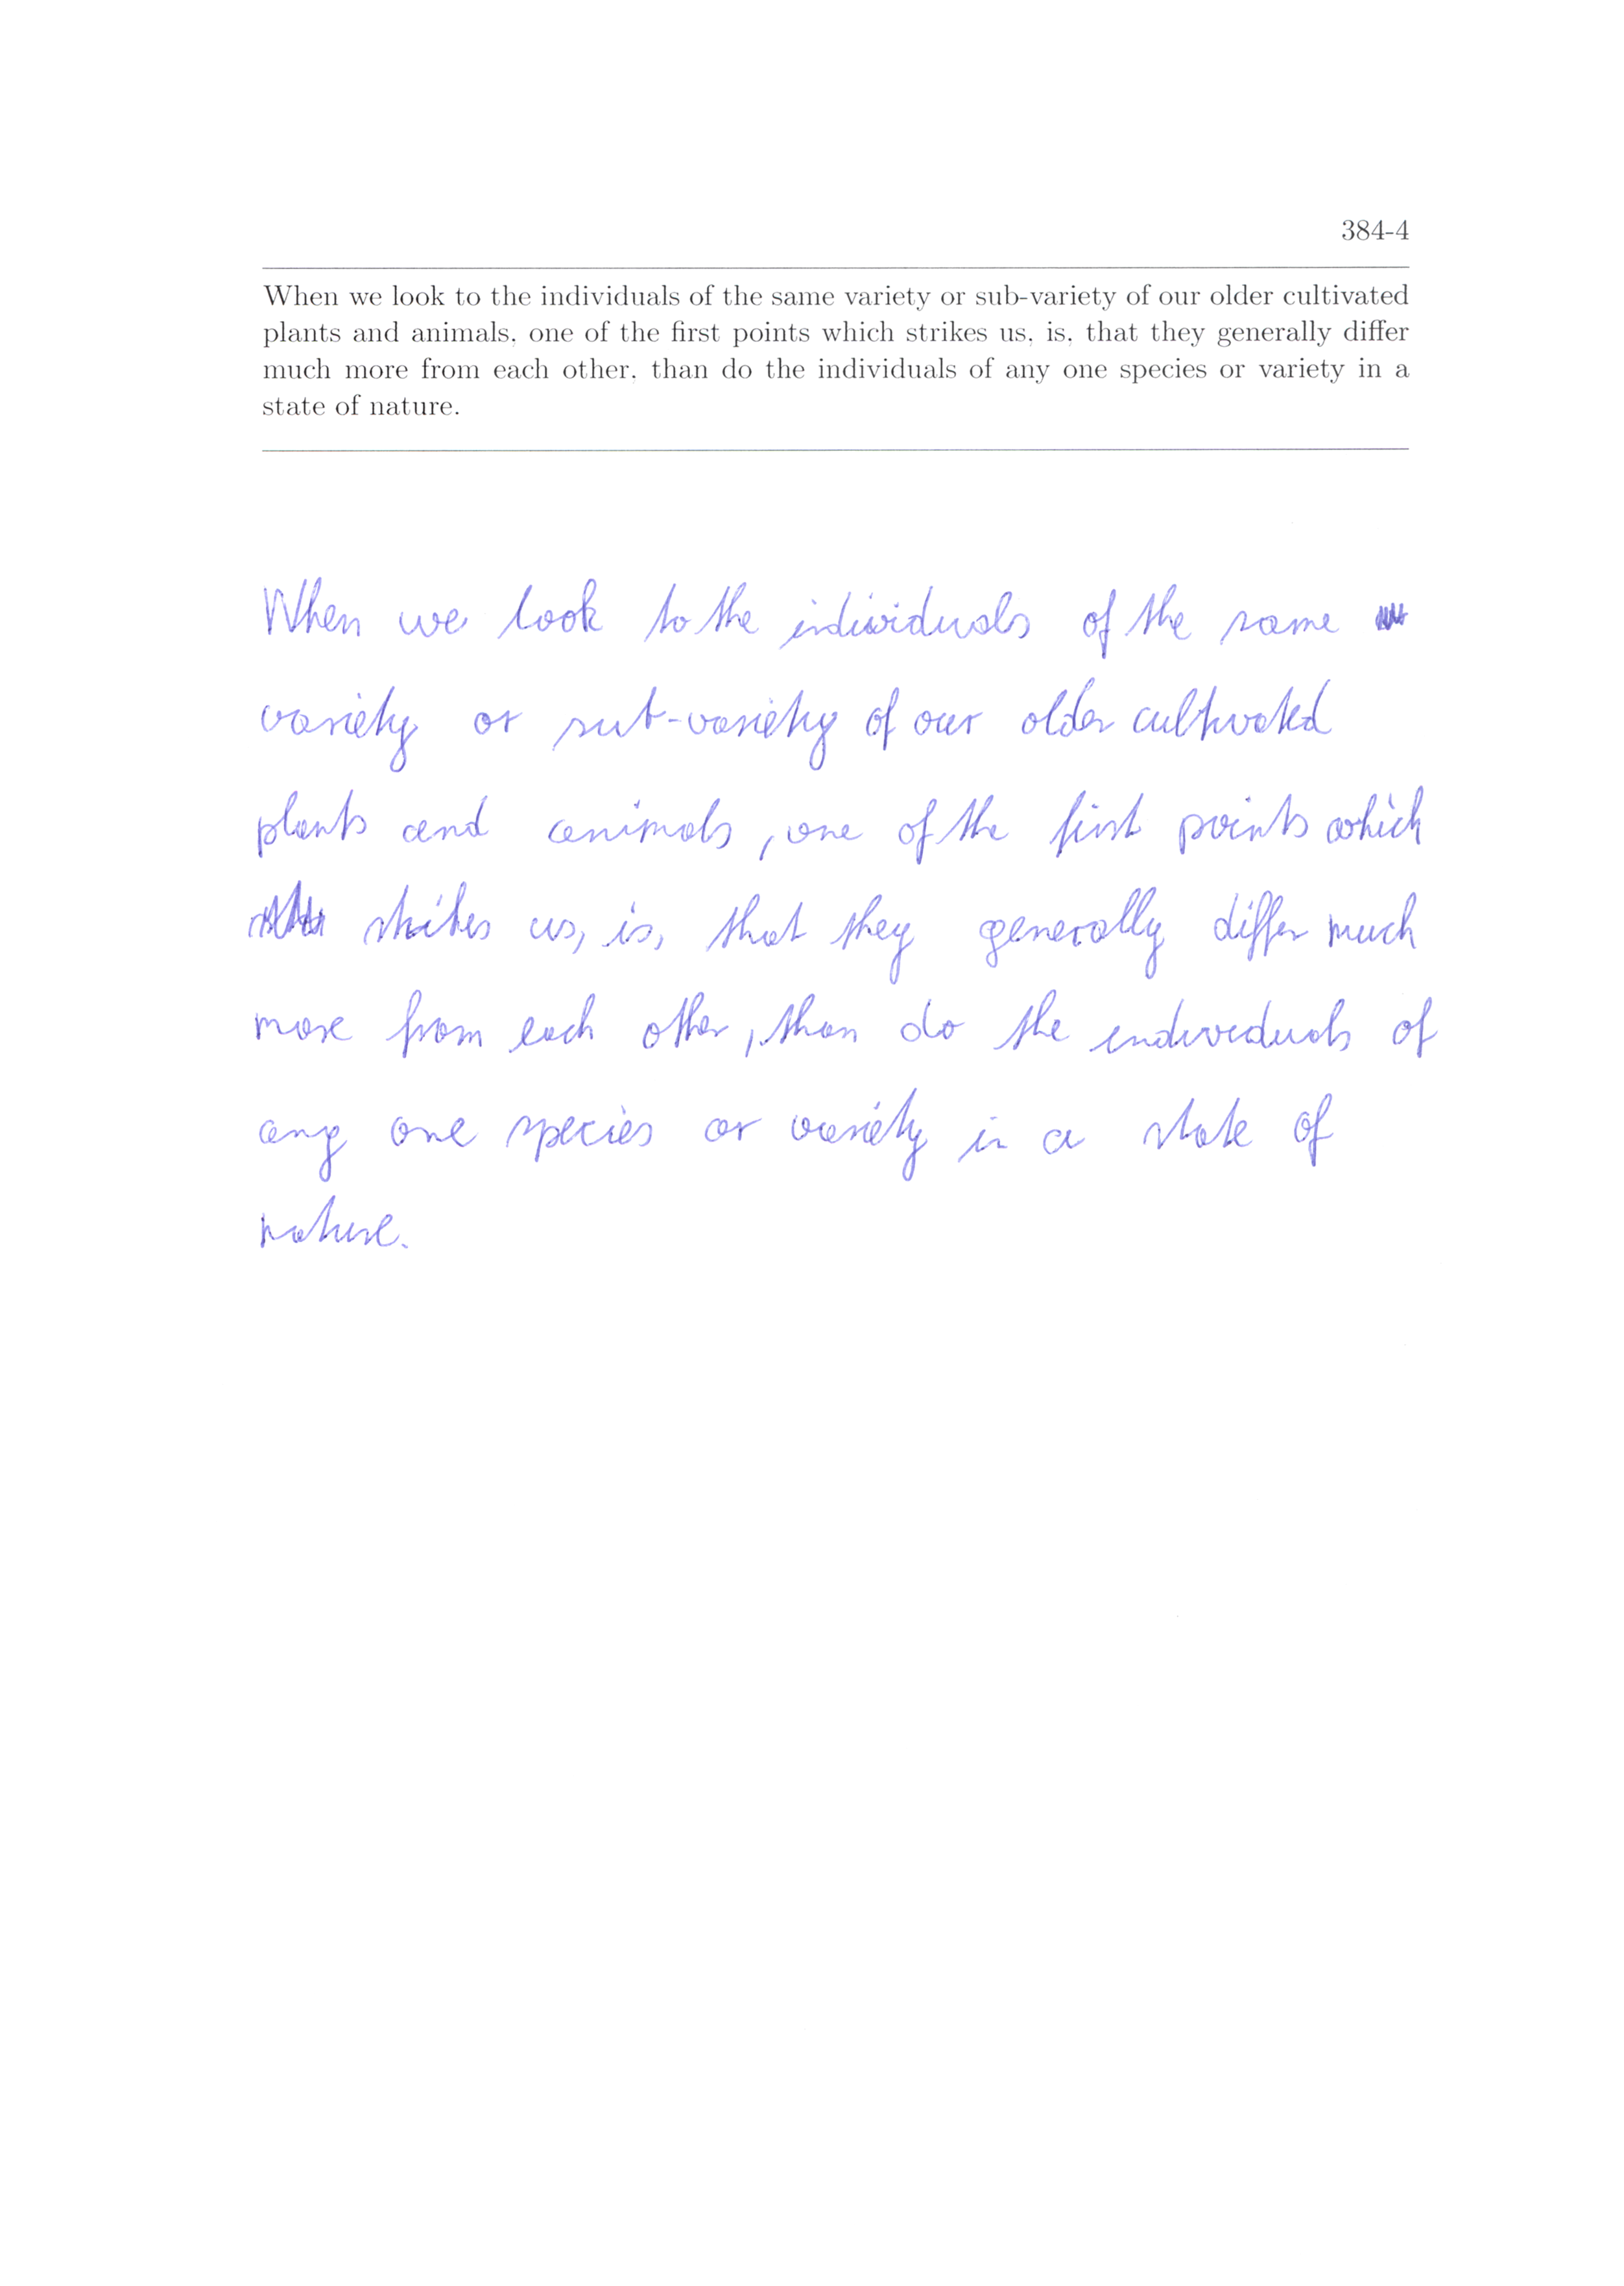 384-4
When we look to the individuals of the same variety or sub-variety of our older cultivated
plants and animals, one of the first points which strikes us, is, that they generally differ
much more from each other, than do the individuals of any one species or variety in a
state of nature.
When we look to the individuals of the same
variety or sub-variety of our older cultivated
plants and animals, one of the first points which
strikes us, is, that they generally differ much
more from each other, than do the individuals of
any one species or variety in a state of
nature.